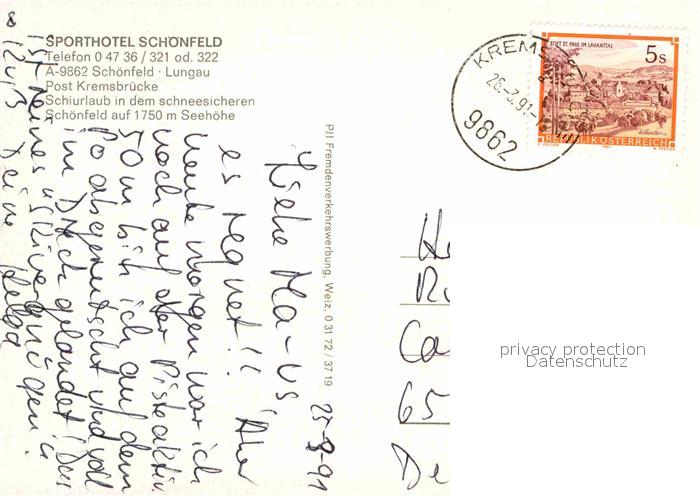 SPORTHOTEL SCHÖNFELD
Telefon 0 47 36 / 321 od. 322
A-9862 Schönfeld · Lungau
Post Kremsbrücke
Schiurlaub in dem schneesicheren
Schönfeld auf 1750 m Seehöhe
PJI Fremdenverkehrswerbung, Weiz, 0 31 72 / 37 19
25-3-91
Liebe Ma-us
es regnet!! Aber
heute morgen war ich
noch auf der Piste aktiv
50 m bin ich auf dem
Po abgerutscht und voll
im Dreck gelandet! Das
ist reines Skivergnügen!!
Deine Helga
KREMS
26.-3.91-
9862
STIFT ST. PAUL IM LAVANTTAL
5s
REPUBLIK ÖSTERREICH
Ca
65
De
privacy protection
Datenschutz